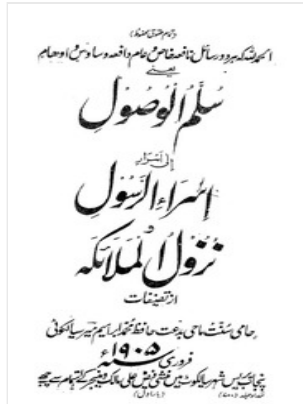 (تمام حقوق محفوظ)
الحمد للہ کہ ہر دو رسائل نافعۂ خاص و عام دافعۂ وساوس و اوہام
یعنے
سُلَّمُ الْوُصُوْلِ
إلی أسْرَارِ
إسْرَاءِ الرَّسُوْلِ
و
نُزُوْلُ الْمَلَائِکَہ
از تصنیفات
حامی سنّت ماحی بدعت حافظ محمد ابراہیم میر سیالکوٹی
فروری ۱۹۰۵ء
پنجاب پریس شہر سیالکوٹ میں منشی فیض علی مالک و منیجر کے اہتمام سے چھپے
(بار اول)